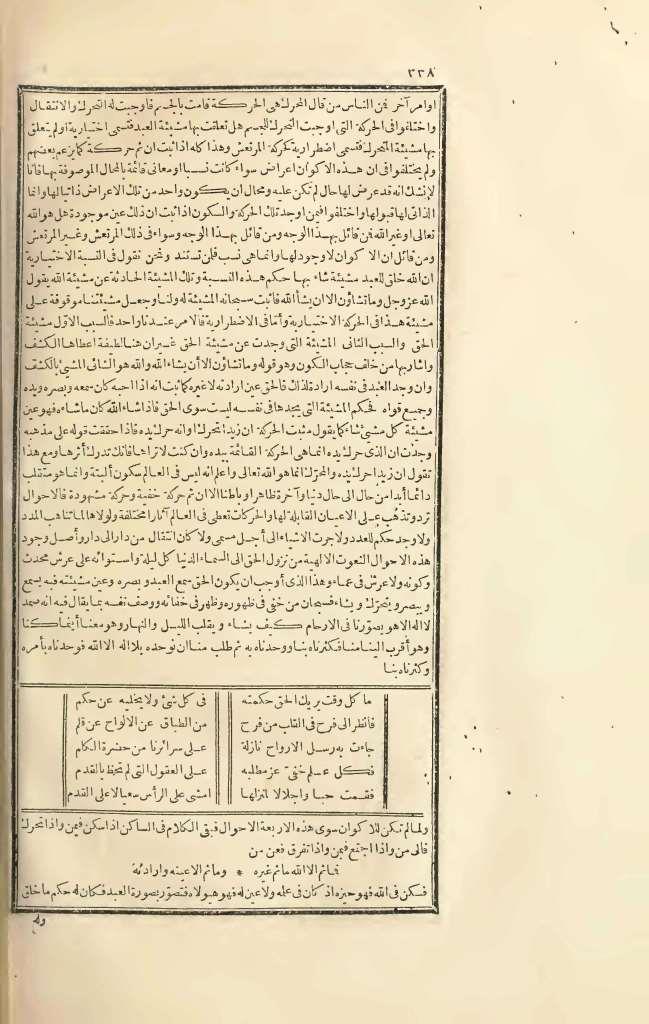 ٣٣٨
اوامر آخر فمن الناس من قال المحرك هي الحركة قامت بالجسم فأوجبت له التحرك والانتقال
واختلفوا في الحركة التي اوجبت التحرك للجسم هل تعلقت بها مشيئة العبد فتسمى اختيارية أو لم يتعلق
بها مشيئة المتحرك فتسمى اضطرارية كحركة المرتعش وهذا كله اذا ثبت ان ثم حركة كما يزعم بعضهم
ولم يختلفوا في ان هذه الاكوان اعراض سواء كانت نسبا او معاني قائمة بالمحال الموصوفة بها فانا
لا نشك انه قد عرض لها حال لم تكن عليه ومحال ان يكون واحد من تلك الاعراض ذاتيا لها وانما
الذاتي لها قبولها واختلفوا فيمن اوجد تلك الحركة والسكون اذا ثبت ان ذلك عين موجودة هل هو الله
تعالى او غير الله فمن قائل بهذا الوجه ومن قائل بهذا الوجه وسواء في ذلك المرتعش وغير المرتعش
ومن قائل ان الاكوان لا وجود لها وانما هي نسب فلمن تستند ونحن نقول في النسبة الاختيارية
ان الله خلق للعبد مشيئة شاء بها حكم هذه النسبة وتلك المشيئة الحادثة عن مشيئة الله يقول
الله عز وجل وما تشاؤن الا ان يشاء الله فأثبت سبحانه المشيئة له ولنا وجعل مشيئتنا موقوفة على
مشيئته هذا في الحركة الاختيارية وأما في الاضطرارية فالامر عندنا واحد فالسبب الاول مشيئة
الحق والسبب الثاني المشيئة التي وجدت عن مشيئة الحق غير ان هنا لطيفة اعطاها الكشف
واشار بها من خلف حجاب الكون وهو قوله وما تشاؤن الا أن يشاء الله والله هو الشائي المشئ بالكشف
وان وجد العبد في نفسه ارادة لذلك فالحق عين ارادته لا غيره كما ثبت انه اذا احبه كان سمعه وبصره ويده
وجميع قواه فحكم المشيئة التي يجدها في نفسه ليست سوى الحق فاذا شاء الله كان ما شاءه فهو عين
مشيئة كل مشئ شاء كما يقول مثبت الحركة ان زيدا تحرك او انه حرك يده فاذا حققت قوله على مذهبه
وجدت ان الذي حرك يده انما هي الحركة القائمة بيده وان كنت لا تراها فانك تدرك أثرها ومع هذا
تقول ان زيدا حرك يده والمحرك انما هو الله تعالى واعلم انه ليس في العالم سكون ألبتة وانما هو متقلب
دائما أبدا من حال الى حال دنيا وآخرة ظاهرا وباطنا الا ان ثم حركة خفية وحركة مشهودة فالاحوال
تردد وتذهب على الاعيان القابلة لها والحركات تعطي في العالم آثارا مختلفة ولولاها لما تناهت المدد
ولا وجد حكم للعدد ولا جرت الاشياء الى أجل مسمى ولا كان انتقال من دار الى دار وأصل وجود
هذه الاحوال النعوت الالهية من نزول الحق الى السماء الدنيا كل ليلة واستوائه على عرش محدث
وكونه ولا عرش في عماء وهذا الذي أوجب ان يكون الحق سمع العبد وبصره وعين مشيئته فبه يسمع
ويبصر ويتحرك ويشاء فسبحان من خفي في ظهوره وظهر في خفائه ووصف نفسه بما يقال فيه انه صمد
لا اله الا هو يصورنا في الارحام كيف يشاء ويقلب الليل والنهار وهو معنا أينما كنا
وهو أقرب الينا منا فكثرناه بنا ووحدناه به ثم طلب منا ان نوحده بلا اله الا الله فوحدناه بأمره
وكثرناه بنا
ما كل وقت يريك الحق حكمته في كل شئ ولا يخليه عن حكم
فانظر الى فرح في القلب من فرح من الطباق عن الالواح عن قلم
جاءت به رسل الارواح نازلة على سرائرنا من حضرة الكلم
فكل علم خفي عز مطلبه على العقول التي لم تحظ بالقدم
فقمت حبا واجلالا لمنزلها امشي على الرأس سعيا لا على القدم
ولما لم تكن للاكوان سوى هذه الاربعة الاحوال فبقي الكلام في الساكن اذا سكن فيمن واذا تحرك
فالى من واذا اجتمع فبمن واذا تفرق فعن من
فما ثم الا الله ما ثم غيره * وما ثم الا عينه وارادته
فسكن في الله فهو حيزه اذ كان في علمه ولا عين له فهو هيولاه فتصور بصورة العبد فكان له حكم ما خلق
وله